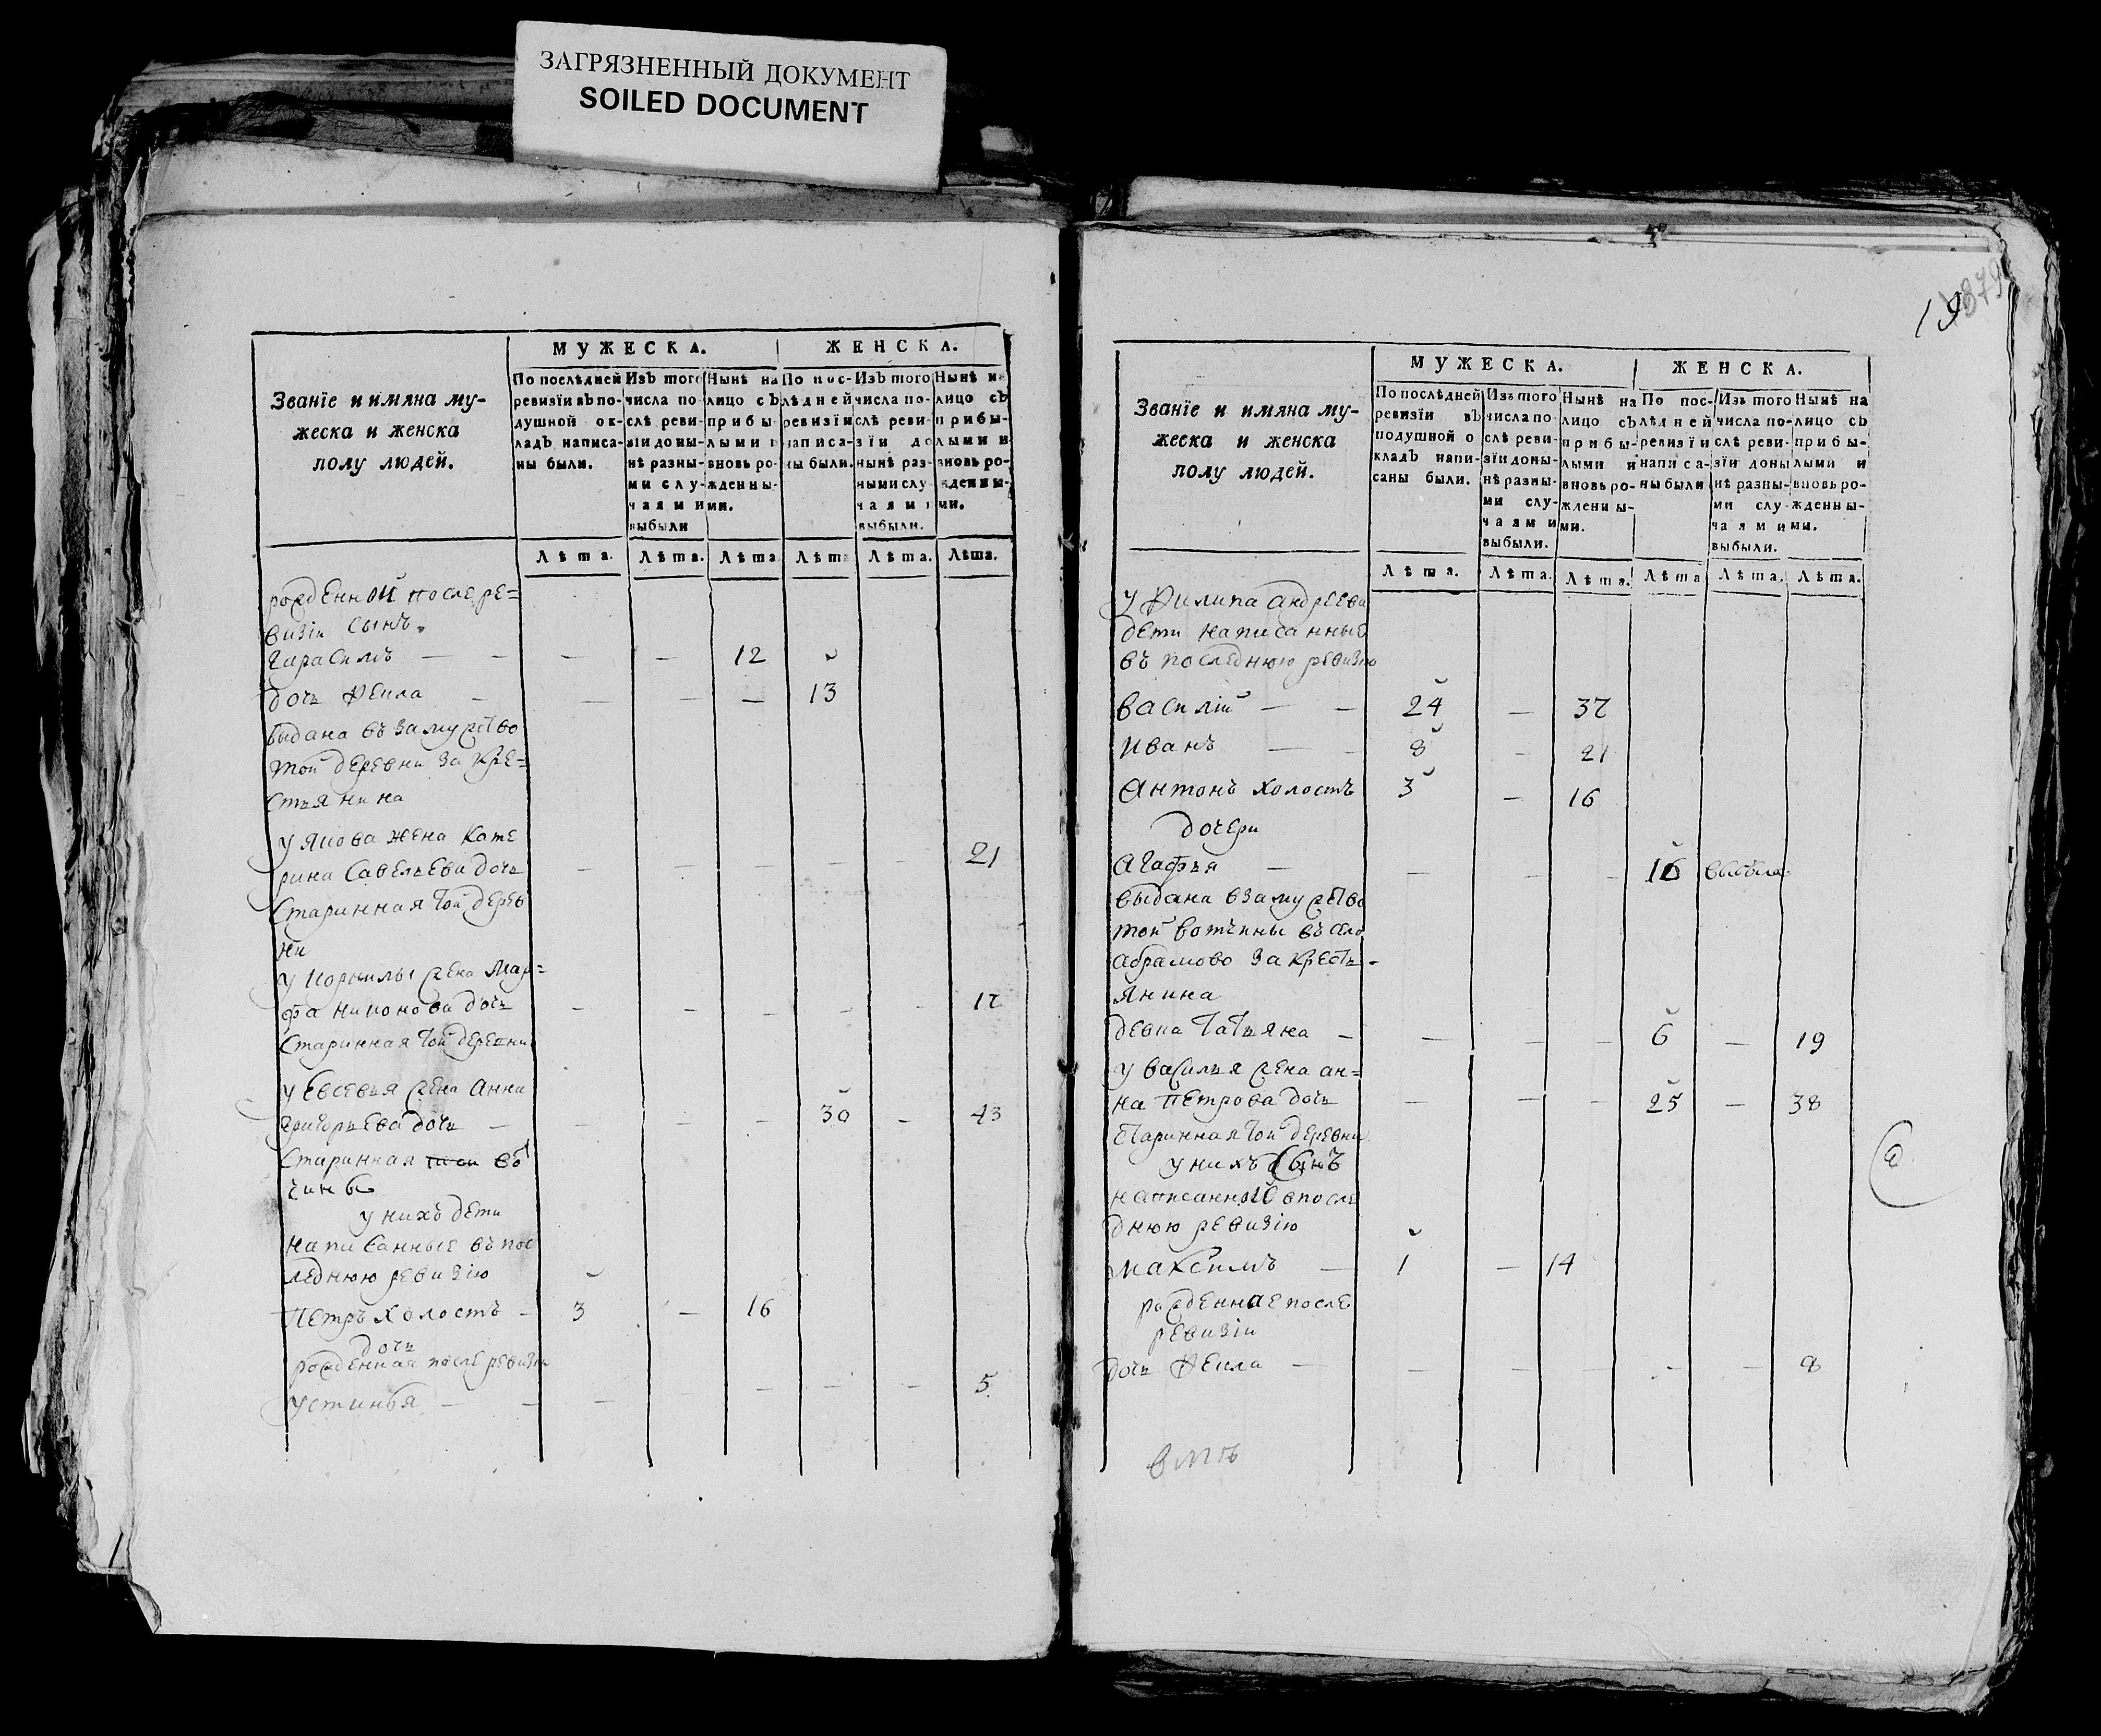 ЗАГРЯЗНЕННЫЙ ДОКУМЕНТ
SOILED DOCUMENT
Званїе и имяна му-
жеска и женска
полу людей.
МУЖЕСКА.
ЖЕНСКА.
По послѣдней ревизїи въ по-душной ок-ладъ написа-ны были.
Изъ того числа по-слѣ реви-зїи доны-нѣ разны-ми слу-чаями выбыли
Нынѣ на лицо съ прибы-лыми и вновь ро-жденны-ми.
По пос-лѣдней ревизїи написа-ны были.
Изъ того числа по-слѣ реви-зїи до нынѣ раз-ными слу-чаями выбыли.
Нынѣ на лицо съ прибы-лыми и вновь ро-жденны-ми.
Лѣта. Лѣта. Лѣта. Лѣта. Лѣта. Лѣта.
рожденной после ре=
визiи сынъ.
Гарасимъ — — — — 12
дочь Фекла — — — — 13
выдана въ замужство
той деревни за кре=
стьянина
у Якова жена Кате
рина Савельева дочь — — — — — 21
старинная той дерев
ни
у Кормилы жена Мар=
фа Никонова дочь — — — — — 17
старинная той деревни
у Евсевья жена Анна
Григорьева дочь — — — — 30 — 43
старинная вот
чины
у нихъ дети
написанные въ пос
леднюю ревизiю
Петръ холостъ — 3 — 16
дочь
рожденная после ревизiи
Устинья — — — — — — 5
Званїе и имяна му-
жеска и женска
полу людей.
МУЖЕСКА.
ЖЕНСКА.
По послѣдней ревизїи въ подушной о кладъ напи-саны были.
Изъ того числа по-слѣ реви-зїи доны-нѣ разны-ми слу-чаями выбыли.
Нынѣ на лицо съ прибы-лыми и вновь ро-жденны-ми.
По пос-лѣдней ревизїи написа-ны были
Изъ того числа по-слѣ реви-зїи доны нѣ разны-ми слу-чаями выбыли.
Нынѣ на лицо съ прибы-лыми и вновь ро-жденны-ми.
Лѣта. Лѣта. Лѣта. Лѣта Лѣта. Лѣта.
у Филипа Андреева
дети написанные
въ последнюю ревизiю
Василiй — — 24 — 37
Иванъ — — 8 — 21
Антонъ холостъ 3 — 16
дочери
Агафья — — — — 16 выбыла
выдана взамужство
той вотчины въ село
Абрамово за кресть-
янина
девка Татьяна — — — — 6 — 19
у Василья жена Ан=
на Петрова дочь — — — 25 — 38
старинная той деревни
у нихъ сынъ
написанной впосле
днюю ревизiю
Максимъ — 1 — 14
рожденная после
ревизiи
дочь Фекла — — — — — — 8